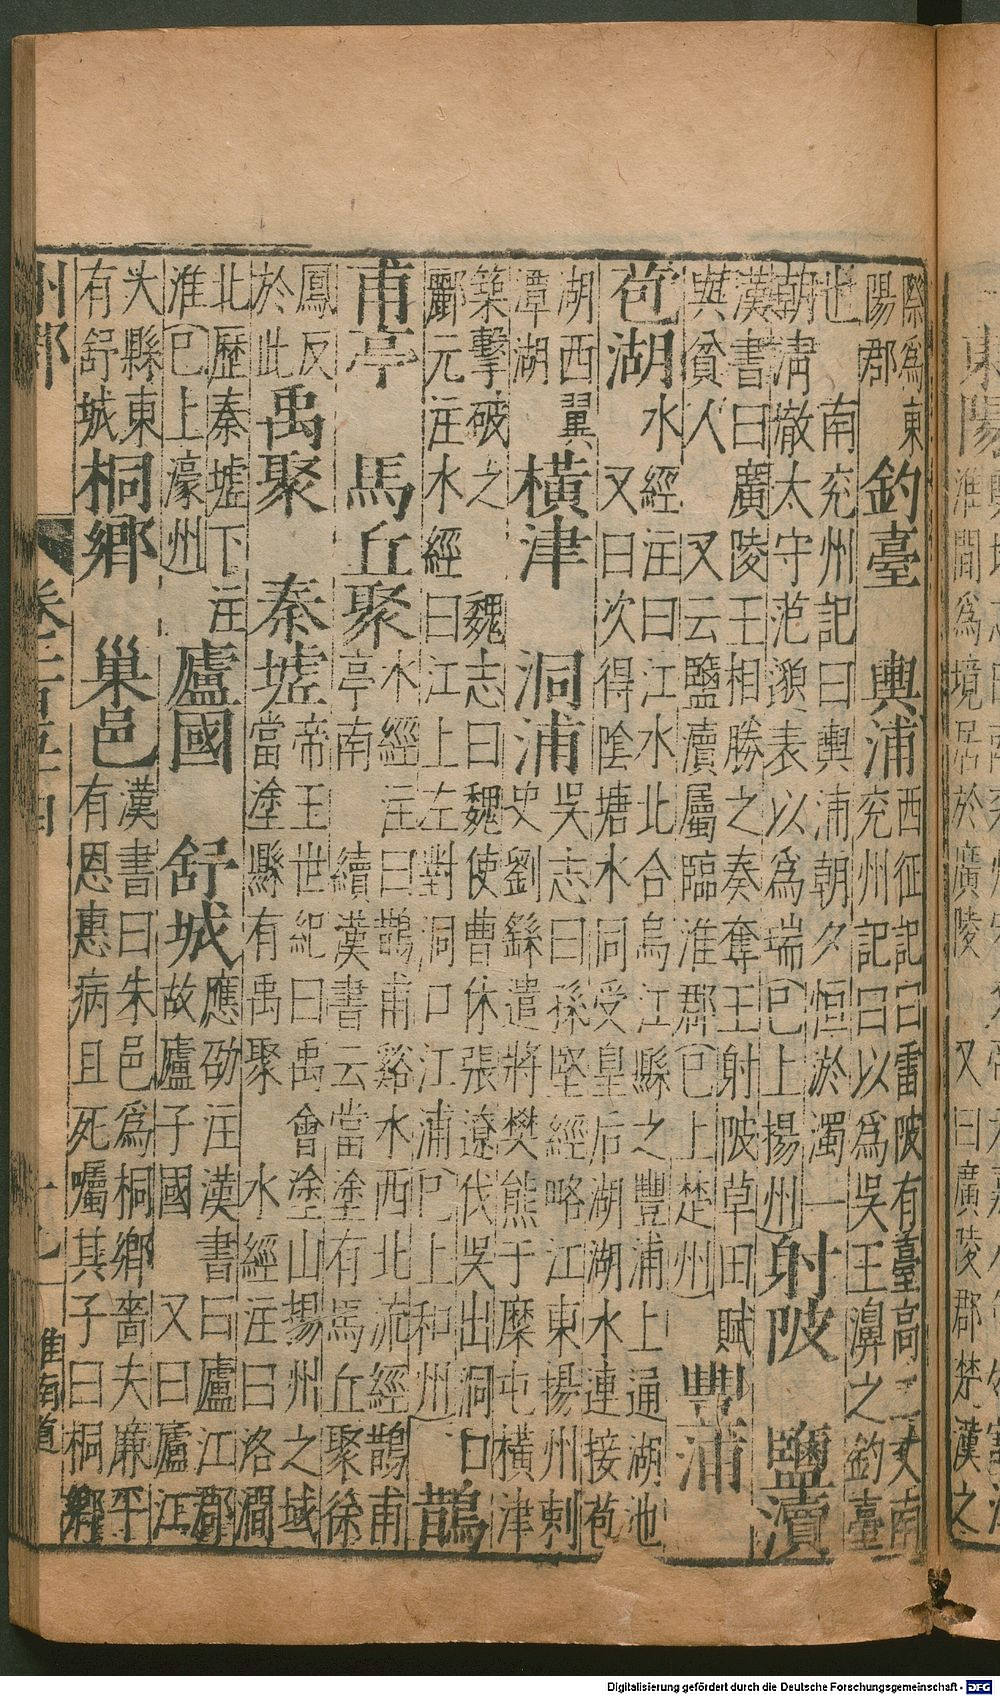 東陽
淮間為境居於廣陵　又曰廣陵郡楚漢之
際為東
陽郡
釣臺　輿浦
西征記曰雷陂有臺高二丈南
兖州記曰以為吳王濞之釣臺
世　南兖州記曰輿浦朝夕恒淤濁一
朝清徹太守范邈表以為瑞已上揚州
射陂　鹽瀆
漢書曰廣陵王相勝之奏奪王射陂草田賦
與貧人　又云鹽瀆屬臨淮郡已上楚州
豐浦
苞湖
水經注曰江水北合烏江縣之豐浦上通湖池
又曰次得陰塘水同受皇后湖湖水連接苞
湖西翼
潭湖
橫津　洞浦
吳志曰孫堅經略江東揚州刺
史劉繇遣將樊熊于糜屯橫津
築擊破之　魏志曰魏使曹休張遼伐吳出洞口
酈元注水經曰江上左對洞口江浦已上和州
鵲
甫亭　馬丘聚
水經注曰鵲甫谿水西北流經鵲甫
亭南　續漢書云當塗有馬丘聚徐
鳳反
於此
禹聚　秦墟
帝王世紀曰禹會塗山揚州之域
當塗縣有禹聚　水經注曰洛澗
北歷秦墟下注
淮已上濠州
廬國　舒城
應劭注漢書曰廬江郡
故廬子國　又曰廬江
大縣東
有舒城
桐鄉　巢邑
漢書曰朱邑為桐鄉嗇夫廉平
有恩惠病且死囑其子曰桐鄉
州郡
淮南道
Digitalisierung gefördert durch die Deutsche Forschungsgemeinschaft - DFG